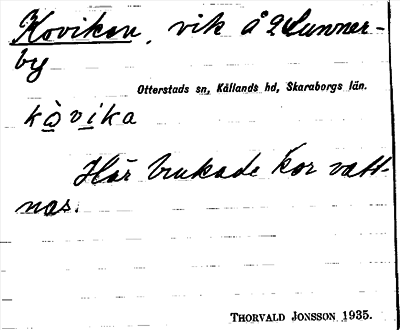 Koviken, vik å 2 Sunner-
by
Otterstads sn, Kållands hd, Skaraborgs län.
kòvika
Här brukade kor vatt-
nas.
THORVALD JONSSON 1935.